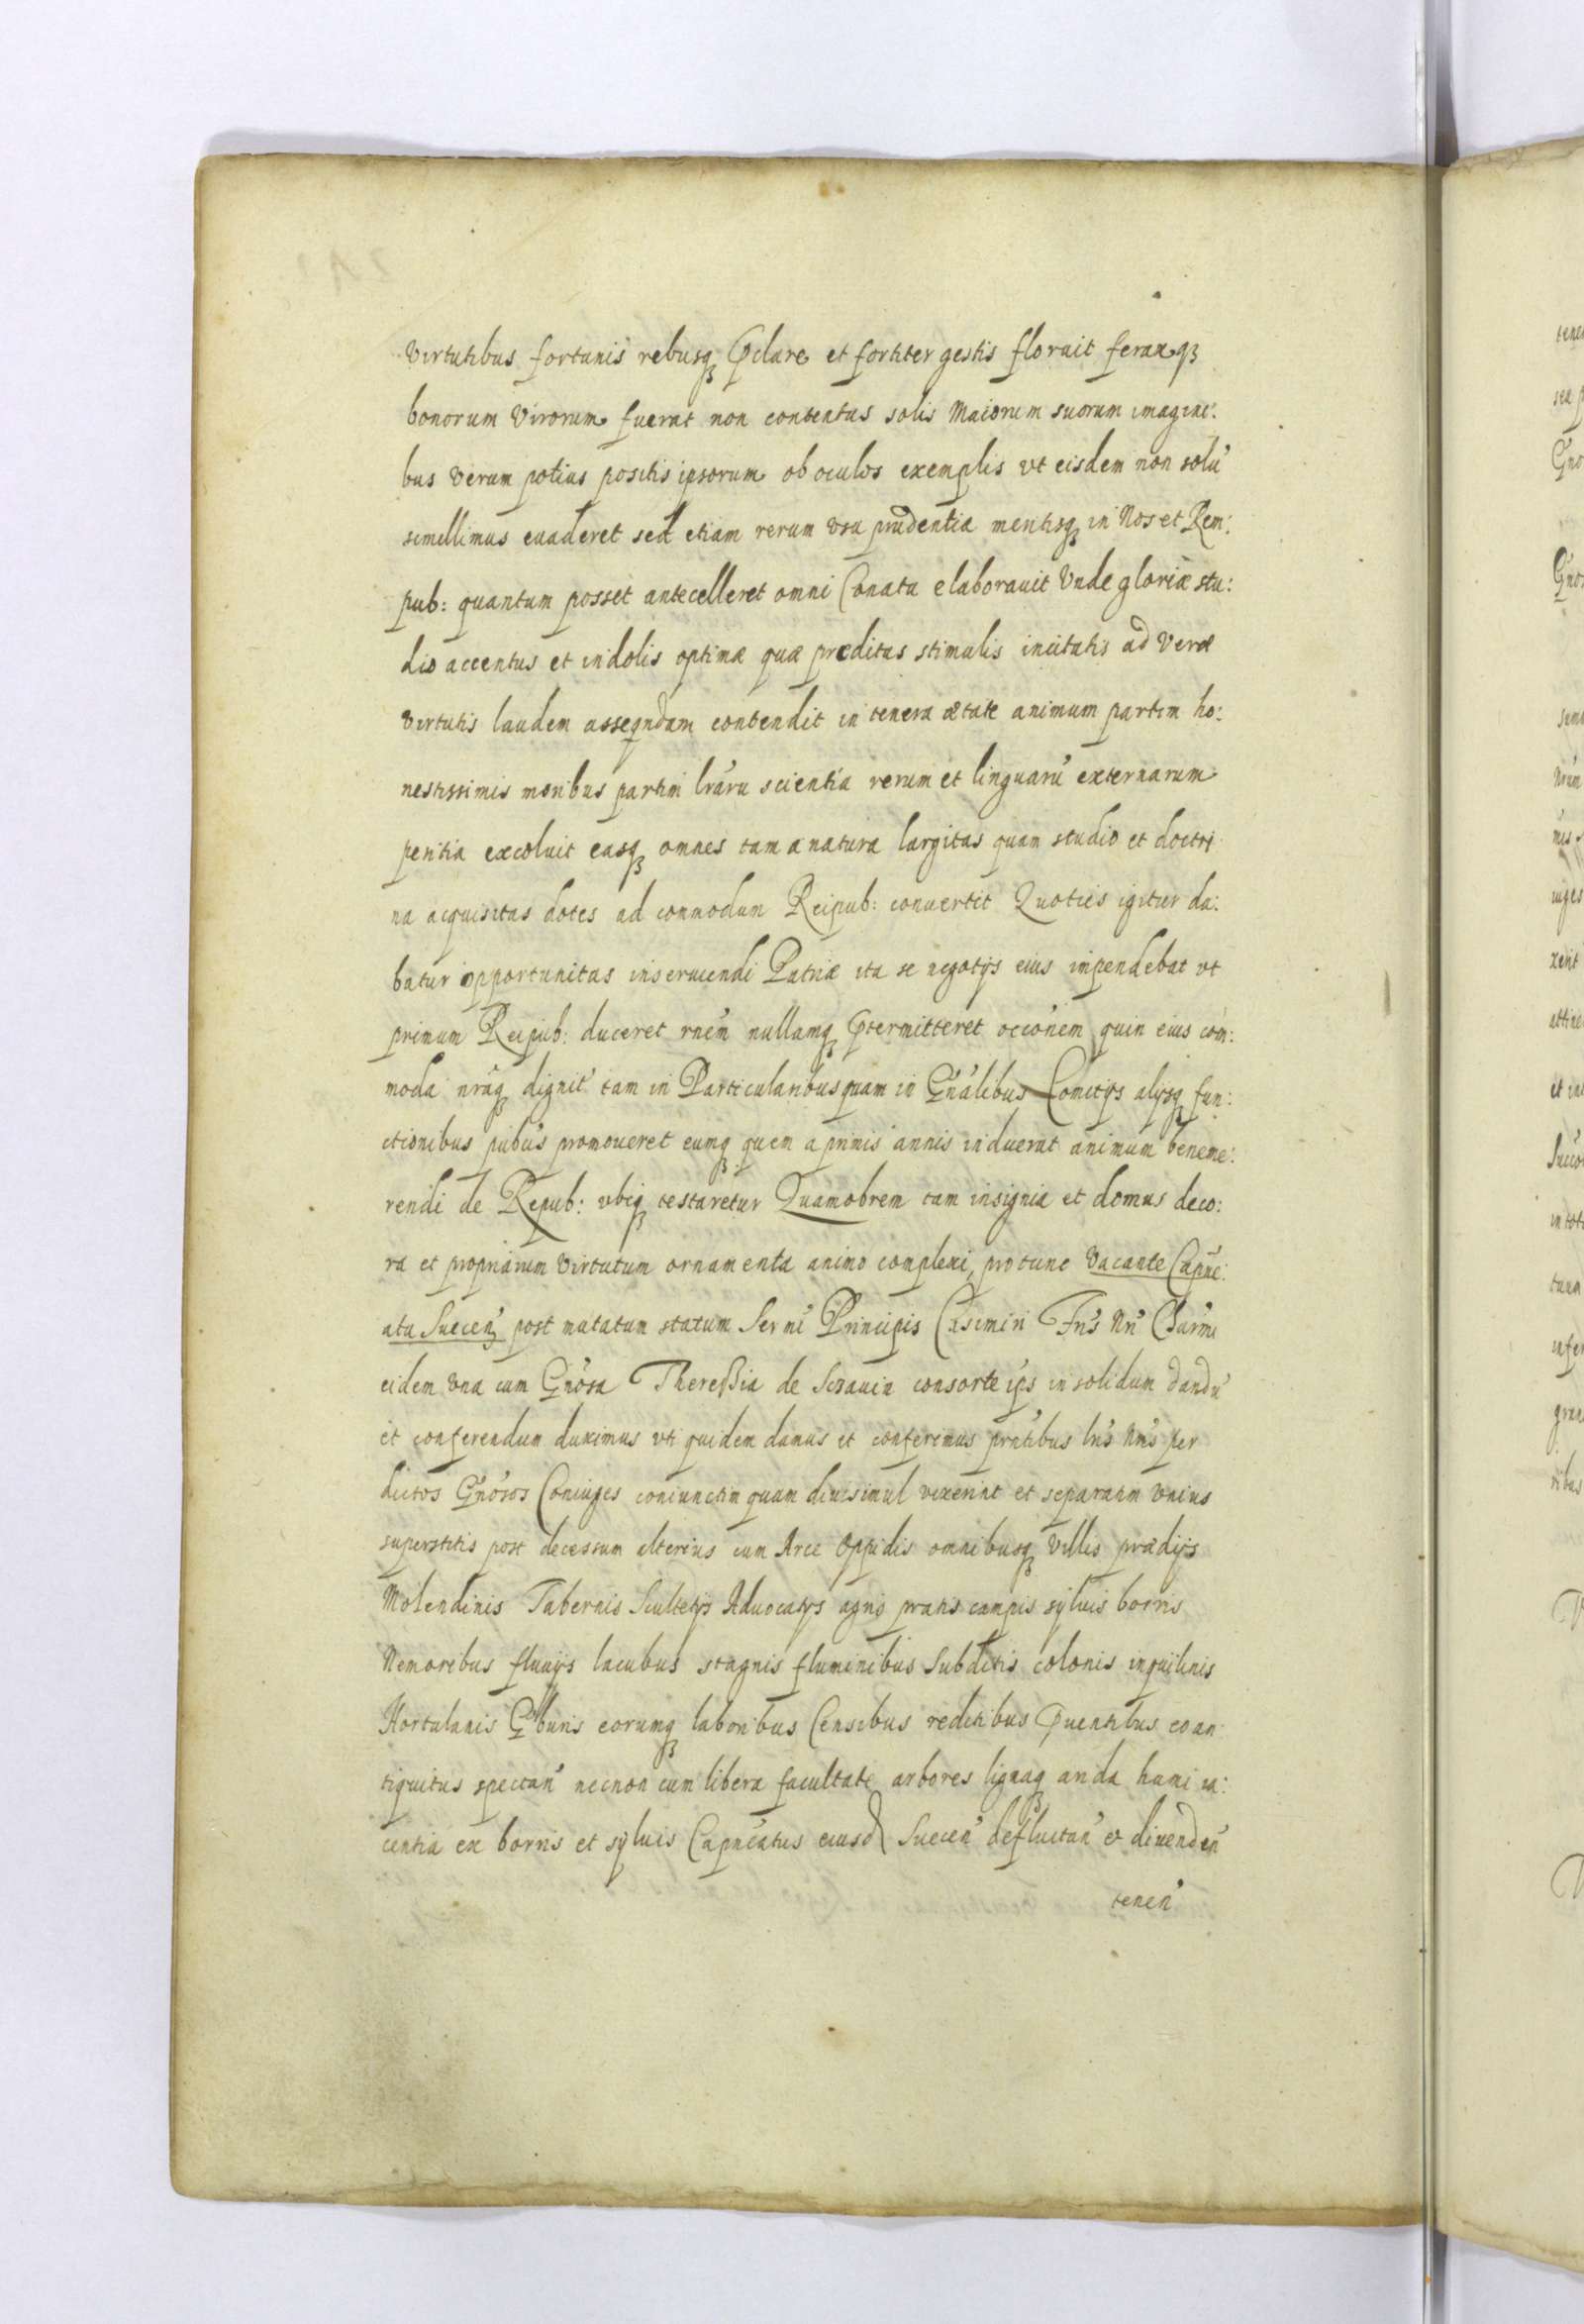 virtutibus fortunis rebusq₃ p̃clare et fortiter gestis floruit feraxq₃
bonorum virorum fuerat non contentus solis Maiorum suorum imagini:
bus verum potius positis ipsorum ob oculos exemplis vt eisdem non solu'
simillimus euaderet sed etiam rerum vsu prudentia mentisq₃ in Nos et Rem:
pub: quantum posset antecelleret omni Conatu elaborauit Vnde gloriæ stu:
dio accentus et indolis optimæ qua præditus stimulis incitatis ad veræ
virtutis laudem asseqndam contendit in tenera ætate animum partim ho:
nestissimis moribus partim lrãru scientia rerum et linguaru' externarum
peritia excoluit easq₃ omnes tam a natura largitas quam studio et doctri
na acquisitas dotes ad commodum Reipub: conuertit Quoties igitur da:
batur opportunitas inseruiendi Patriæ ita se negotijs eius inpendebat vt
primum Reipub: duceret rnem' nullamq₃ p̃termitteret occõnem quin eius com:
moda nrãq₃ dignit' tam in Particularibus quam in Gñalibus Comitijs alijsq₃ fun:
ctionibus pubcis promoueret eumq₃ quem a primis annis induerat animum beneme:
rendi de Repub: vbiq₃ testaretur Quamobrem tam insignia et domus deco:
ra et propriarum virtutum ornamenta animo complexi, pro tunc vacante Capñe:
atu Suecen₃ post mutatum statum Sermi Principis Casimiri Frĩs Nrĩ Charmi
eidem vna cum Gñosa Theressia de Sczauin consorte ip̃s in solidum dandu'
et conferendum duximus vti quidem damus et conferimus pñtibus lrĩs Nrĩs per
dictos Gñosos Coniuges coniunctim quam diu simul vixerint et separatim vnius
superstitis post decessum alterius cum Arce Oppidis omnibusq₃ villis prædijs
Molendinis Tabernis Scultetijs Aduocatijs agris pratis campis syluis borris
Nemoribus fluuijs lacubus stagnis fluminibus Subditis colonis inquilinis
Hortulanis Gburis eorumq₃ laboribus Censibus reditibus p̃uentibus eo an
tiquitus spectan' necnon cum libera facultate arbores lignaq₃ arida humi ia:
centia ex borris et syluis Capñeatus eiusd Suecen' defluitan' et diuenden'
tenen'